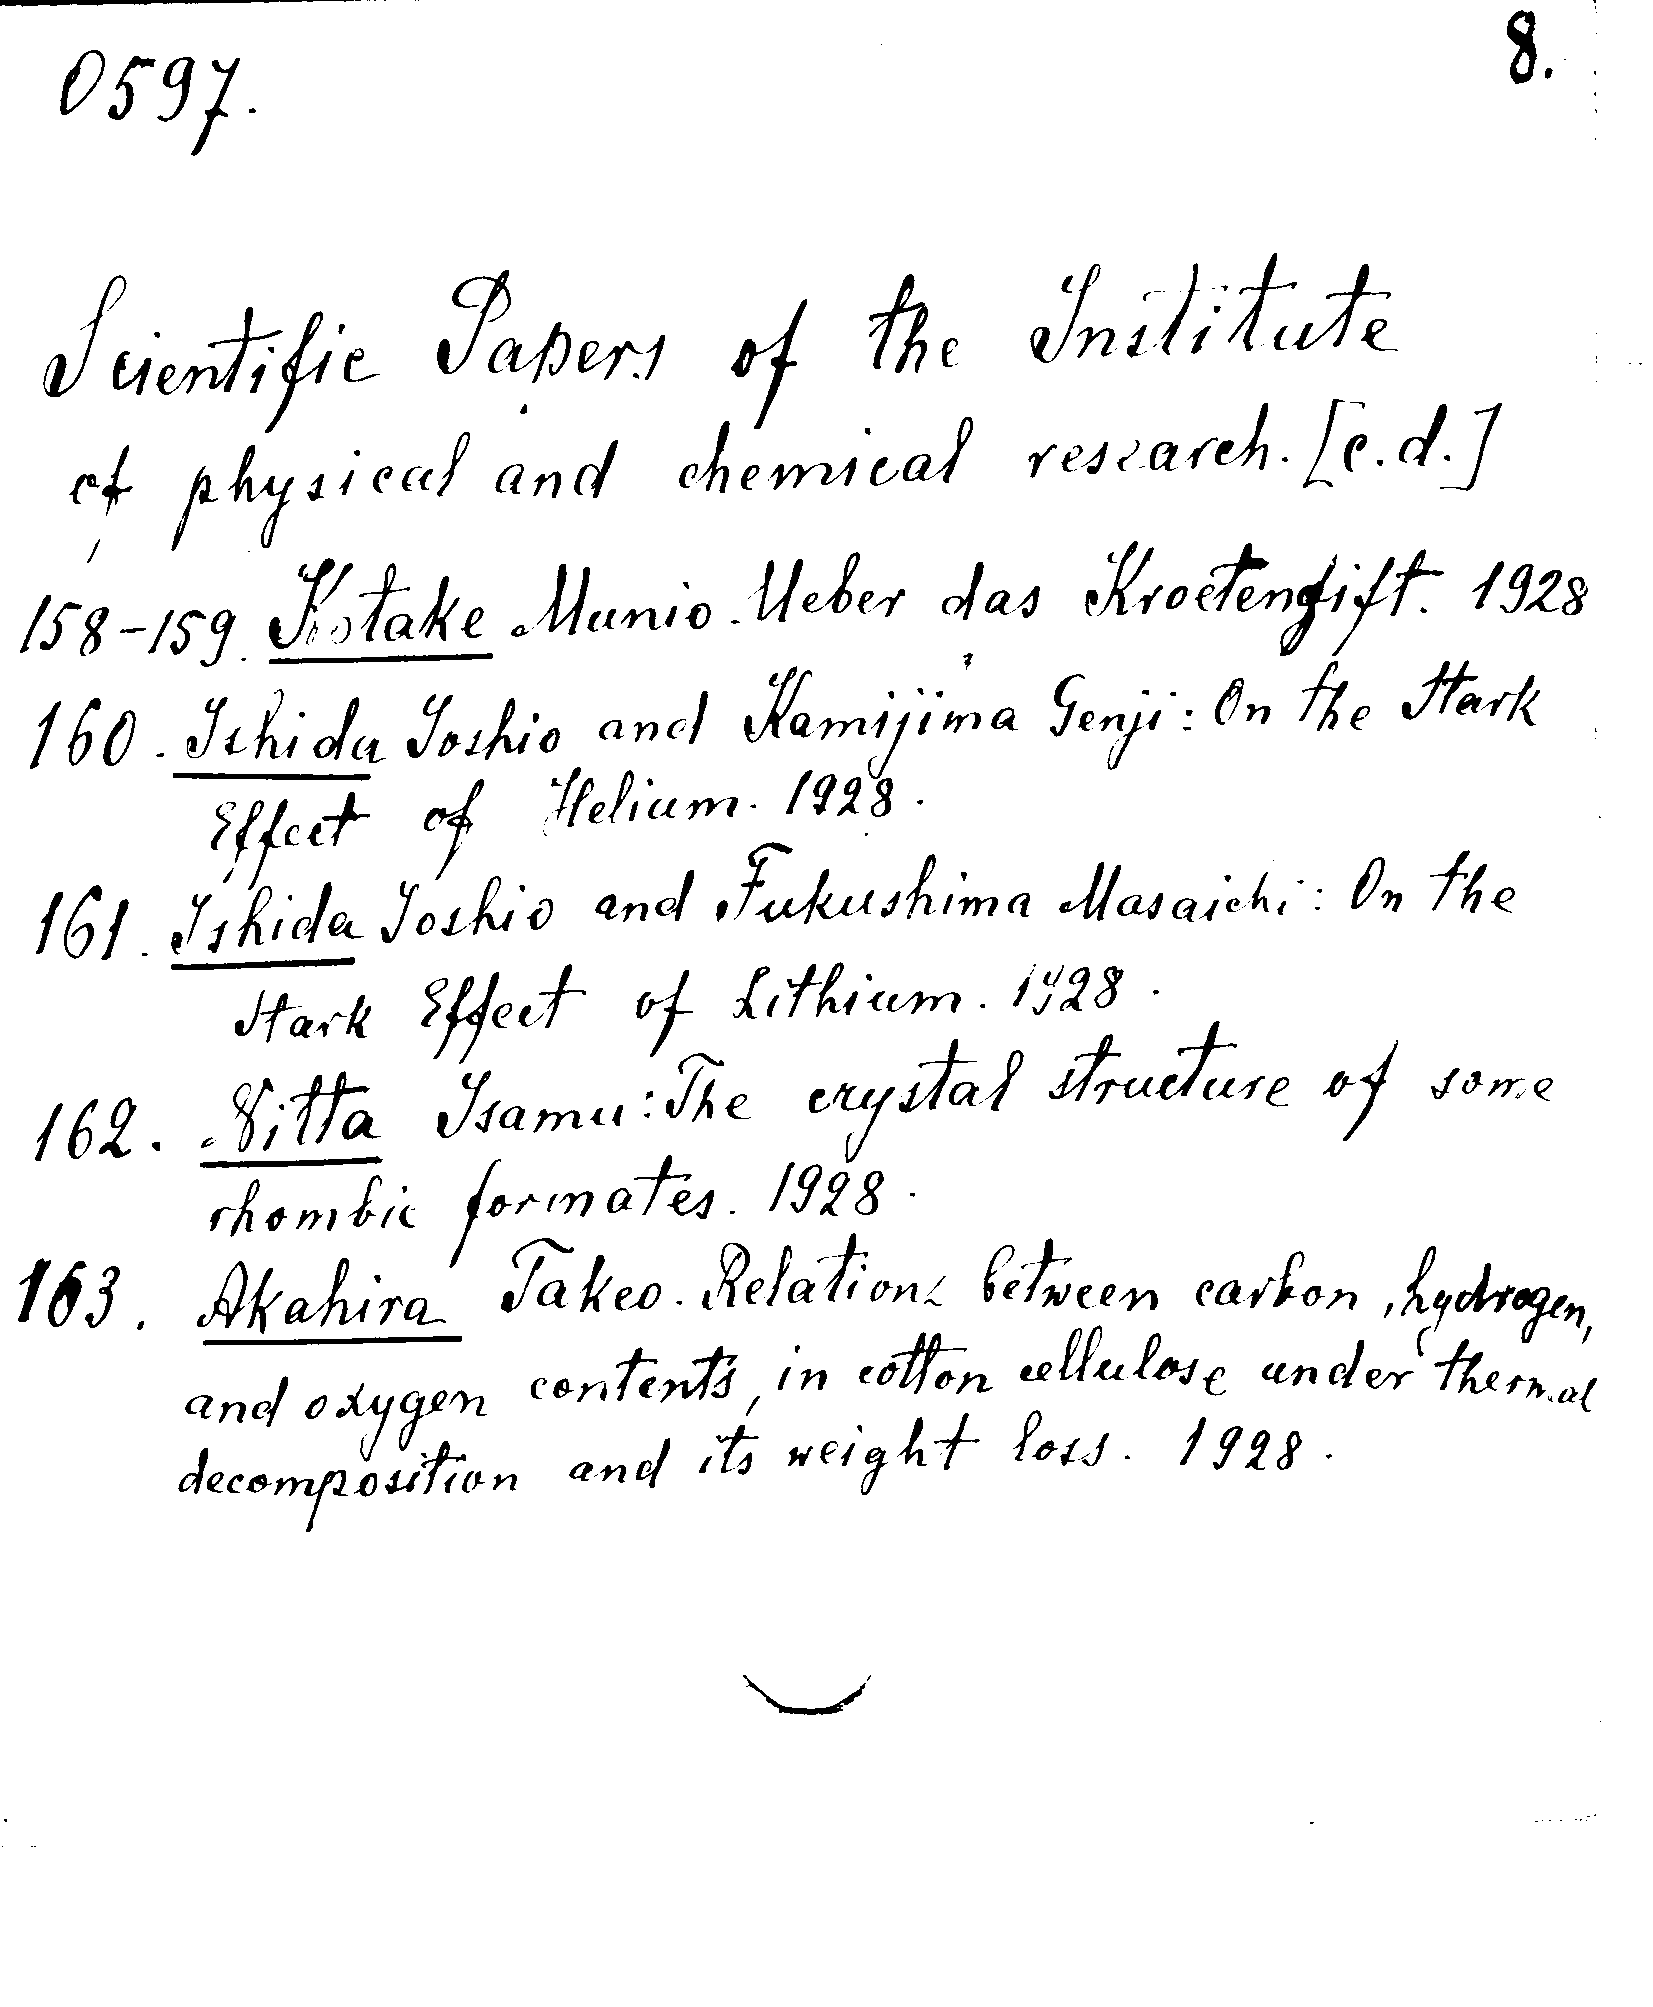 0597.
8.
Scientific Papers of the Institute
of physical and chemical research. [c.d.]
158-159. Kotake Munio. Ueber das Kroetengift. 1928
160. Ishida Yoshio and Kamijima Genji: On the Stark
Effect of Helium. 1928.
161. Ishida Yoshio and Fukushima Masaichi: On the
Stark Effect of Lithium. 1928.
162. Nitta Isamu: The crystal structure of some
rhombic formates. 1928.
163. Akahira Takeo. Relations between carbon, hydrogen,
and oxygen contents, in cotton cellulose under thermal
decomposition and its weight loss. 1928.